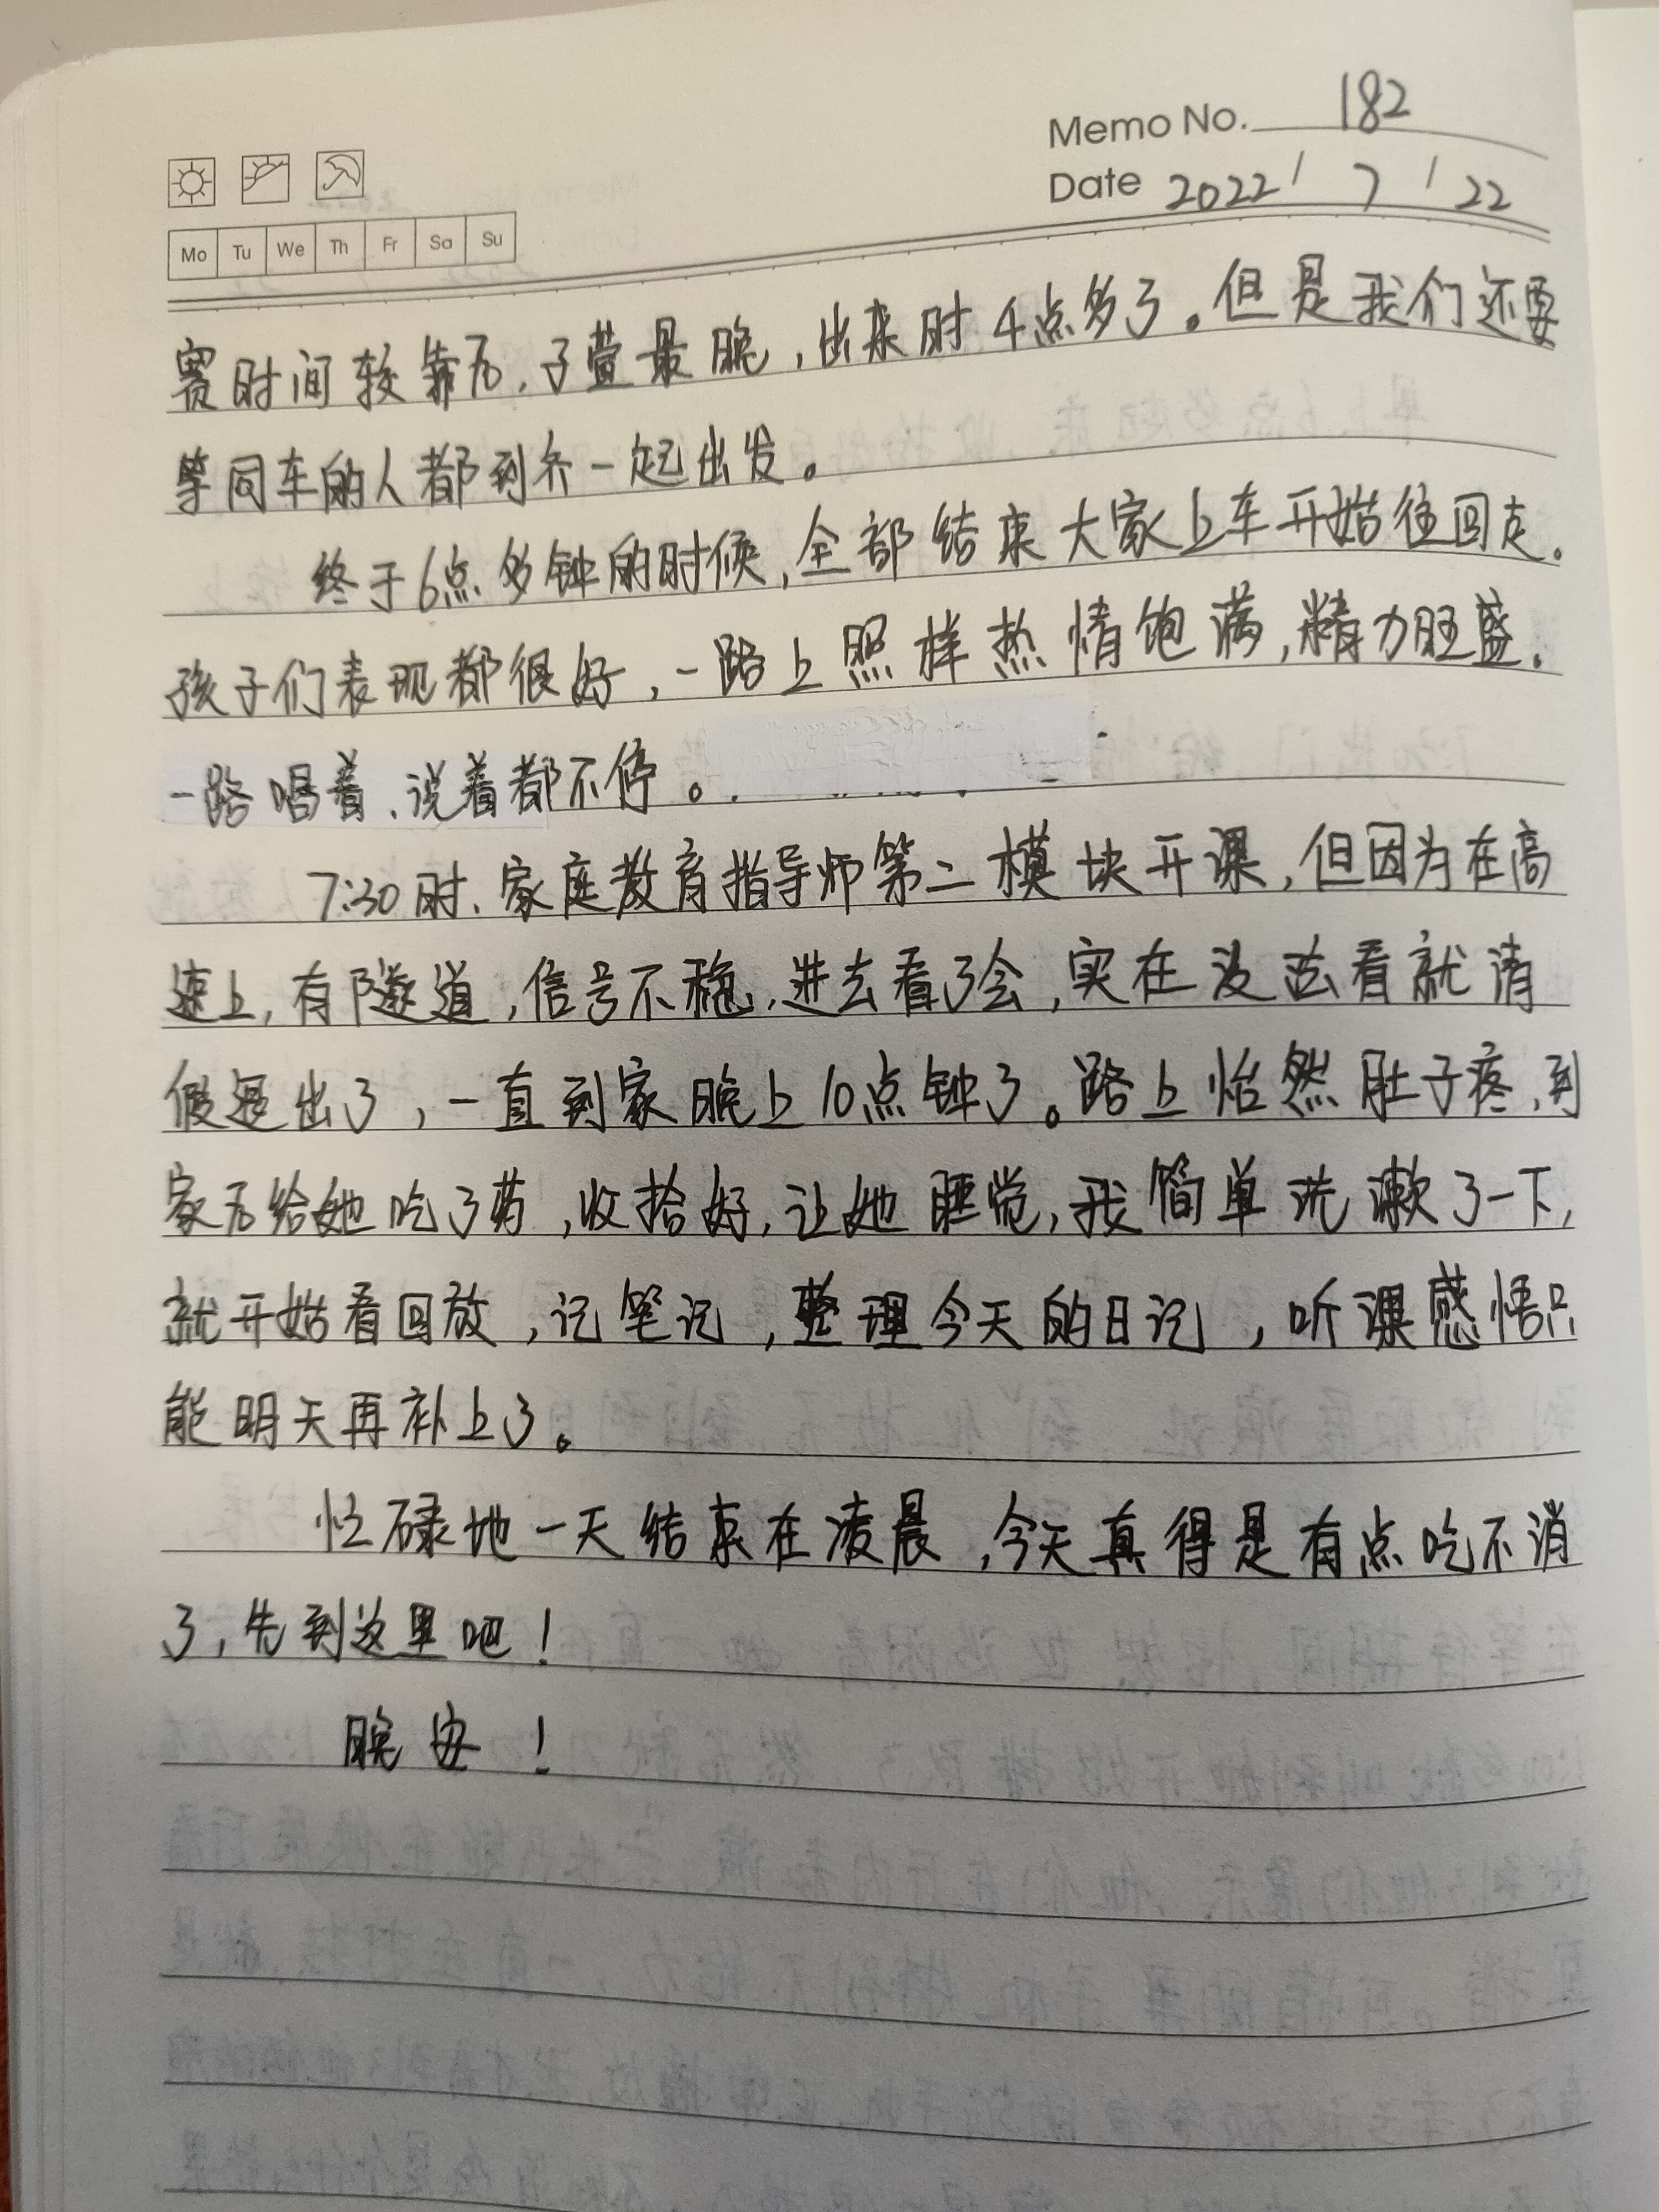 Memo No. 182
Date 2022 / 7 / 22
Mo Tu We Th Fr Sa Su
赛时间较靠后,子萱最晚,出来时4点多了。但是我们还要
等同车的人都到齐一起出发。
终于6点多钟的时候,全部结束大家上车开始往回走。
孩子们表现都很好,一路上照样热情饱满,精力旺盛.
一路唱着、说着都不停。
7:30时、家庭教育指导师第二模块开课,但因为在高
速上,有隧道,信号不稳,进去看了会,实在没法看就请
假退出了,一直到家晚上10点钟了。路上怡然肚子疼,到
家后给她吃了药,收拾好,让她睡觉,我简单洗漱了一下,
就开始看回放,记笔记,整理今天的日记,听课感悟只
能明天再补上了。
忙碌地一天结束在凌晨,今天真得是有点吃不消
了,先到这里吧!
晚安!